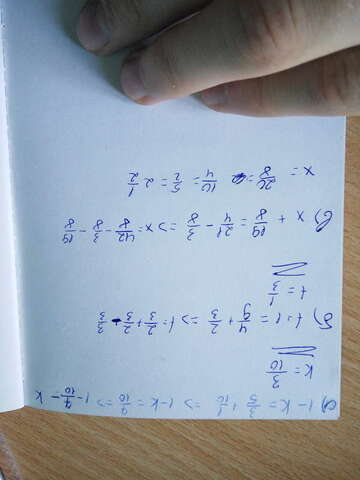 а) 1 - k = 3/5 + 1/10 => 1 - k = 7/10 => 1 - 7/10 - k
k = 3/10
б) t + 1 = 4/6 + 2/3 => t = 2/3 + 2/3 - 3/3
t = 1/3
в) x + 19/8 = 21/4 - 3/8 => x = 42/8 - 3/8 - 19/8
x = 20/8 = 10/4 = 5/2 = 2 1/2